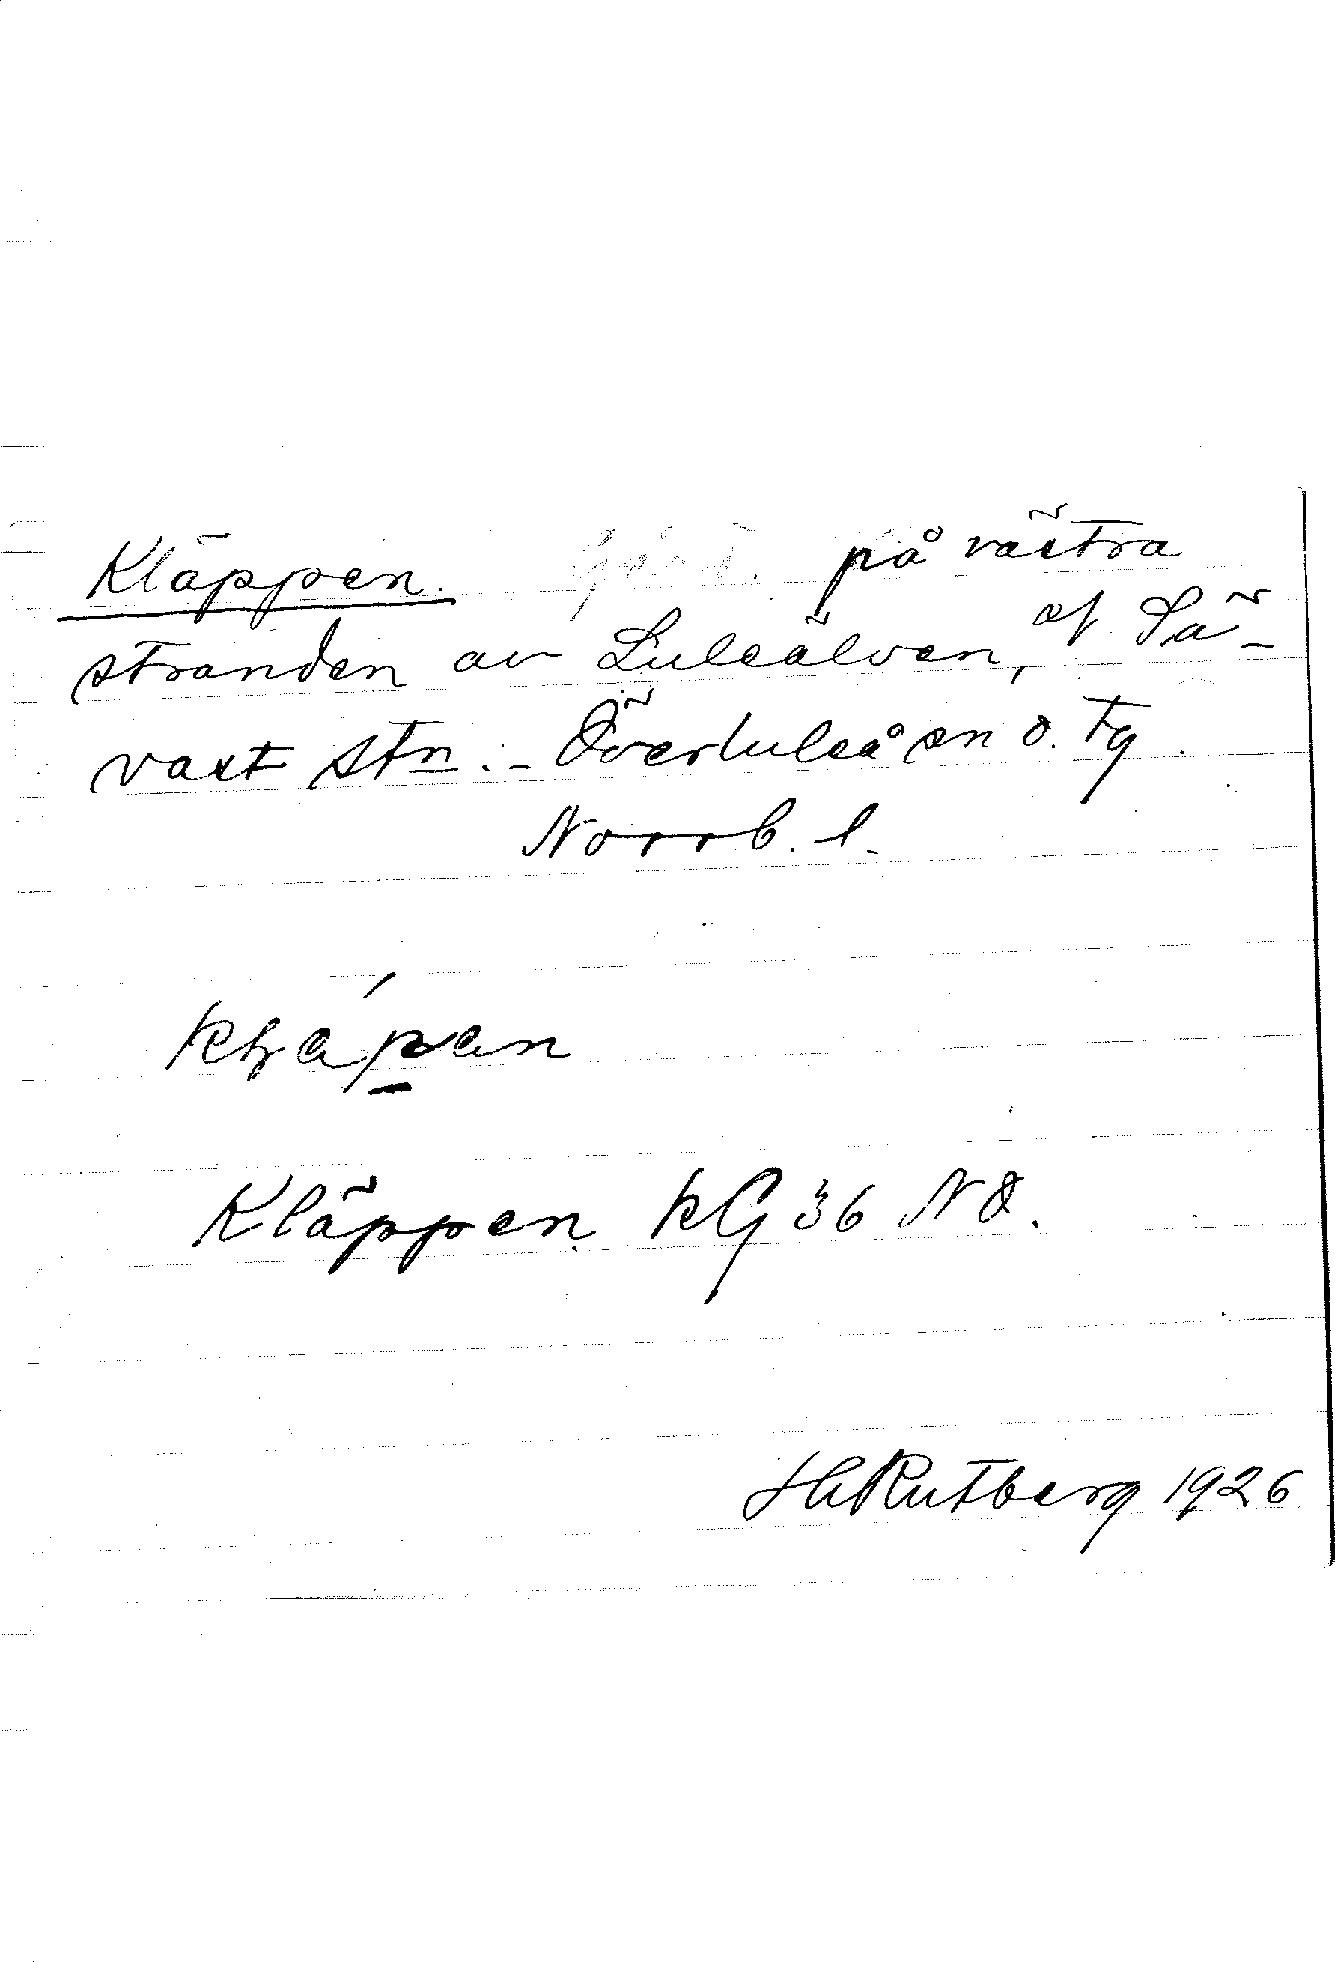 Kläppen. Gård. på västra
stranden av Luleälven, of. Sä-
vast stn. - Överluleå sn o. tg
Norrb. l.
Kläppen kG 36 NO.
HRutberg 1926